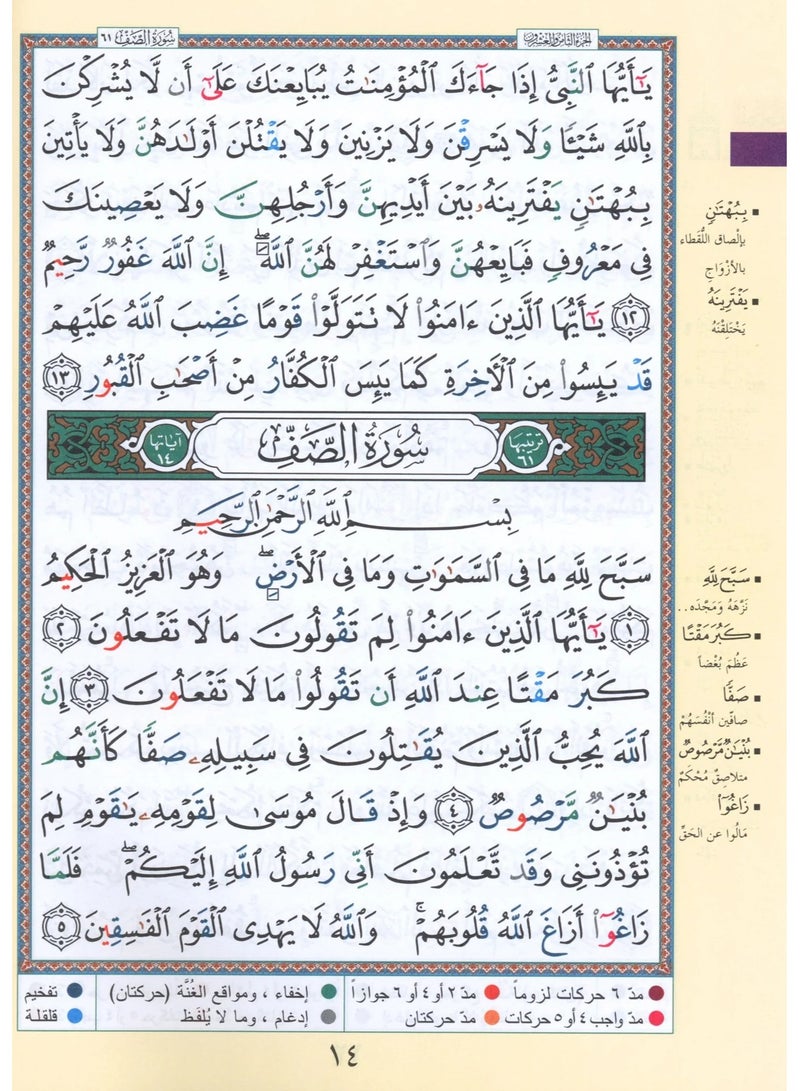 الجزء الثامن والعشرون
سُورَةُ الصَّفِّ ٦١
يَـٰٓأَيُّهَا ٱلنَّبِىُّ إِذَا جَآءَكَ ٱلْمُؤْمِنَـٰتُ يُبَايِعْنَكَ عَلَىٰٓ أَن لَّا يُشْرِكْنَ
بِٱللَّهِ شَيْـًٔا وَلَا يَسْرِقْنَ وَلَا يَزْنِينَ وَلَا يَقْتُلْنَ أَوْلَـٰدَهُنَّ وَلَا يَأْتِينَ
بِبُهْتَـٰنٍ يَفْتَرِينَهُۥ بَيْنَ أَيْدِيهِنَّ وَأَرْجُلِهِنَّ وَلَا يَعْصِينَكَ
فِى مَعْرُوفٍ فَبَايِعْهُنَّ وَٱسْتَغْفِرْ لَهُنَّ ٱللَّهَ ۖ إِنَّ ٱللَّهَ غَفُورٌ رَّحِيمٌ
١٢ يَـٰٓأَيُّهَا ٱلَّذِينَ ءَامَنُوا۟ لَا تَتَوَلَّوْا۟ قَوْمًا غَضِبَ ٱللَّهُ عَلَيْهِمْ
قَدْ يَئِسُوا۟ مِنَ ٱلْـَٔاخِرَةِ كَمَا يَئِسَ ٱلْكُفَّارُ مِنْ أَصْحَـٰبِ ٱلْقُبُورِ ١٣
ترتيبها ٦١ سُورَةُ الصَّفِّ آياتها ١٤
بِسْمِ ٱللَّهِ ٱلرَّحْمَـٰنِ ٱلرَّحِيمِ
سَبَّحَ لِلَّهِ مَا فِى ٱلسَّمَـٰوَٰتِ وَمَا فِى ٱلْأَرْضِ ۖ وَهُوَ ٱلْعَزِيزُ ٱلْحَكِيمُ
١ يَـٰٓأَيُّهَا ٱلَّذِينَ ءَامَنُوا۟ لِمَ تَقُولُونَ مَا لَا تَفْعَلُونَ ٢
كَبُرَ مَقْتًا عِندَ ٱللَّهِ أَن تَقُولُوا۟ مَا لَا تَفْعَلُونَ ٣ إِنَّ
ٱللَّهَ يُحِبُّ ٱلَّذِينَ يُقَـٰتِلُونَ فِى سَبِيلِهِۦ صَفًّا كَأَنَّهُم
بُنْيَـٰنٌ مَّرْصُوصٌ ٤ وَإِذْ قَالَ مُوسَىٰ لِقَوْمِهِۦ يَـٰقَوْمِ لِمَ
تُؤْذُونَنِى وَقَد تَّعْلَمُونَ أَنِّى رَسُولُ ٱللَّهِ إِلَيْكُمْ ۖ فَلَمَّا
زَاغُوٓا۟ أَزَاغَ ٱللَّهُ قُلُوبَهُمْ ۚ وَٱللَّهُ لَا يَهْدِى ٱلْقَوْمَ ٱلْفَـٰسِقِينَ ٥
■ بِبُهْتَـٰنٍ
بإلْصاق اللُّقَطاء
بالأزْوَاجِ
■ يَفْتَرِينَهُ
يَخْتَلِقْنَهُ
■ سَبَّحَ لِلَّهِ
نَزَّهَهُ وَمَجَّدَه..
■ كَبُرَ مَقْتًا
عَظُمَ بُغْضاً
■ صَفًّا
صافّين أنْفُسَهُمْ
■ بُنْيَـٰنٌ مَّرْصُوصٌ
متلاصِقٌ مُحْكَمٌ
■ زَاغُوٓا
مَالُوا عن الحَقِّ
● مدّ ٦ حركات لزوماً ● مدّ ٢ أو ٤ أو ٦ جوازاً
● مدّ واجب ٤ أو ٥ حركات ● مدّ حركتان
● إخفاء ، ومواقع الغُنَّة (حركتان) ● تفخيم
● إدغام ، وما لا يُلفَظ ● قلقلة
١٤